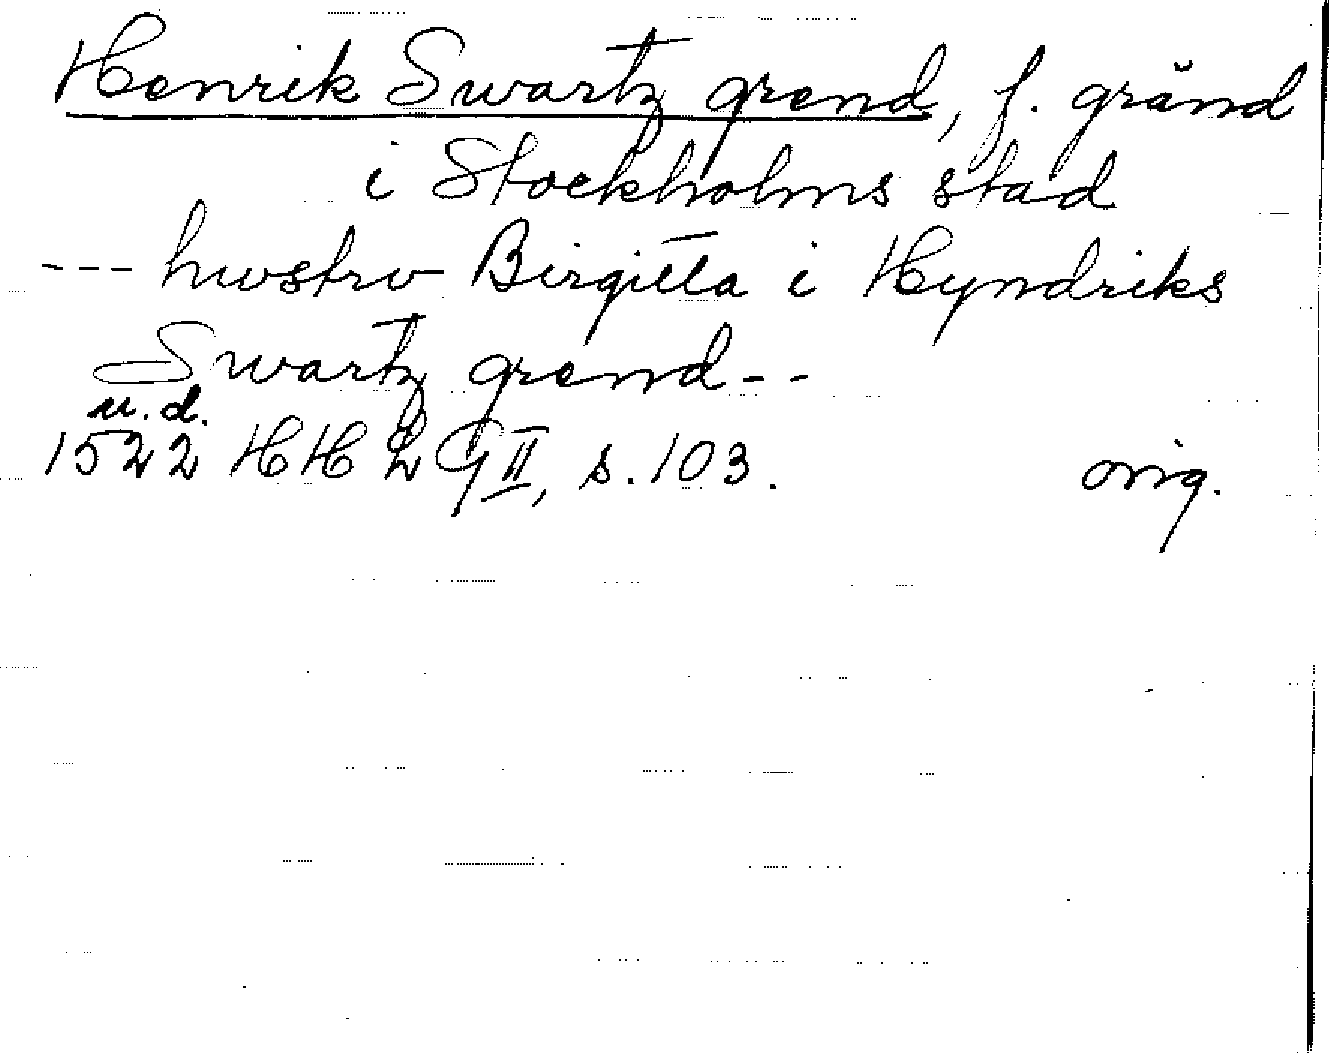 Henrik Swartz grend, f. gränd
i Stockholms stad
--- hwstrv Birgitta i Hyndriks
Swartz grend--
u.d.
1522 HH 2 G II, s. 103. orig.